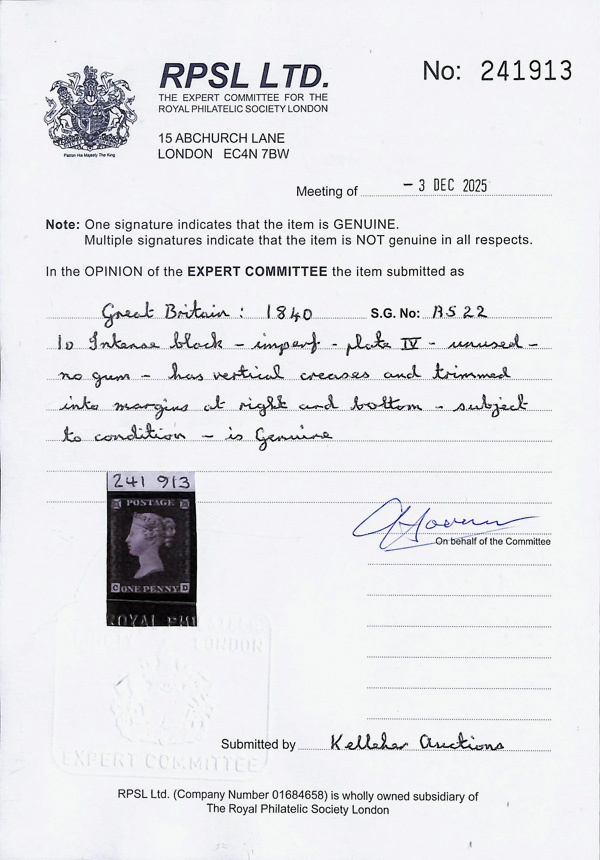 RPSL LTD.
THE EXPERT COMMITTEE FOR THE
ROYAL PHILATELIC SOCIETY LONDON
No: 241913
Patron His Majesty The King
15 ABCHURCH LANE
LONDON EC4N 7BW
Meeting of - 3 DEC 2025
Note: One signature indicates that the item is GENUINE.
Multiple signatures indicate that the item is NOT genuine in all respects.
In the OPINION of the EXPERT COMMITTEE the item submitted as
Great Britain: 1840 S.G. No: AS22
1D Intense black - imperf - plate IV - unused -
no gum - has vertical creases and trimmed
into margins at right and bottom - subject
to condition - is Genuine
241 913
POSTAGE
C ONE PENNY D
ROYAL PHI
On behalf of the Committee
LONDON
EXPERT COMMITTEE
Submitted by Kelleher Auctions
RPSL Ltd. (Company Number 01684658) is wholly owned subsidiary of
The Royal Philatelic Society London